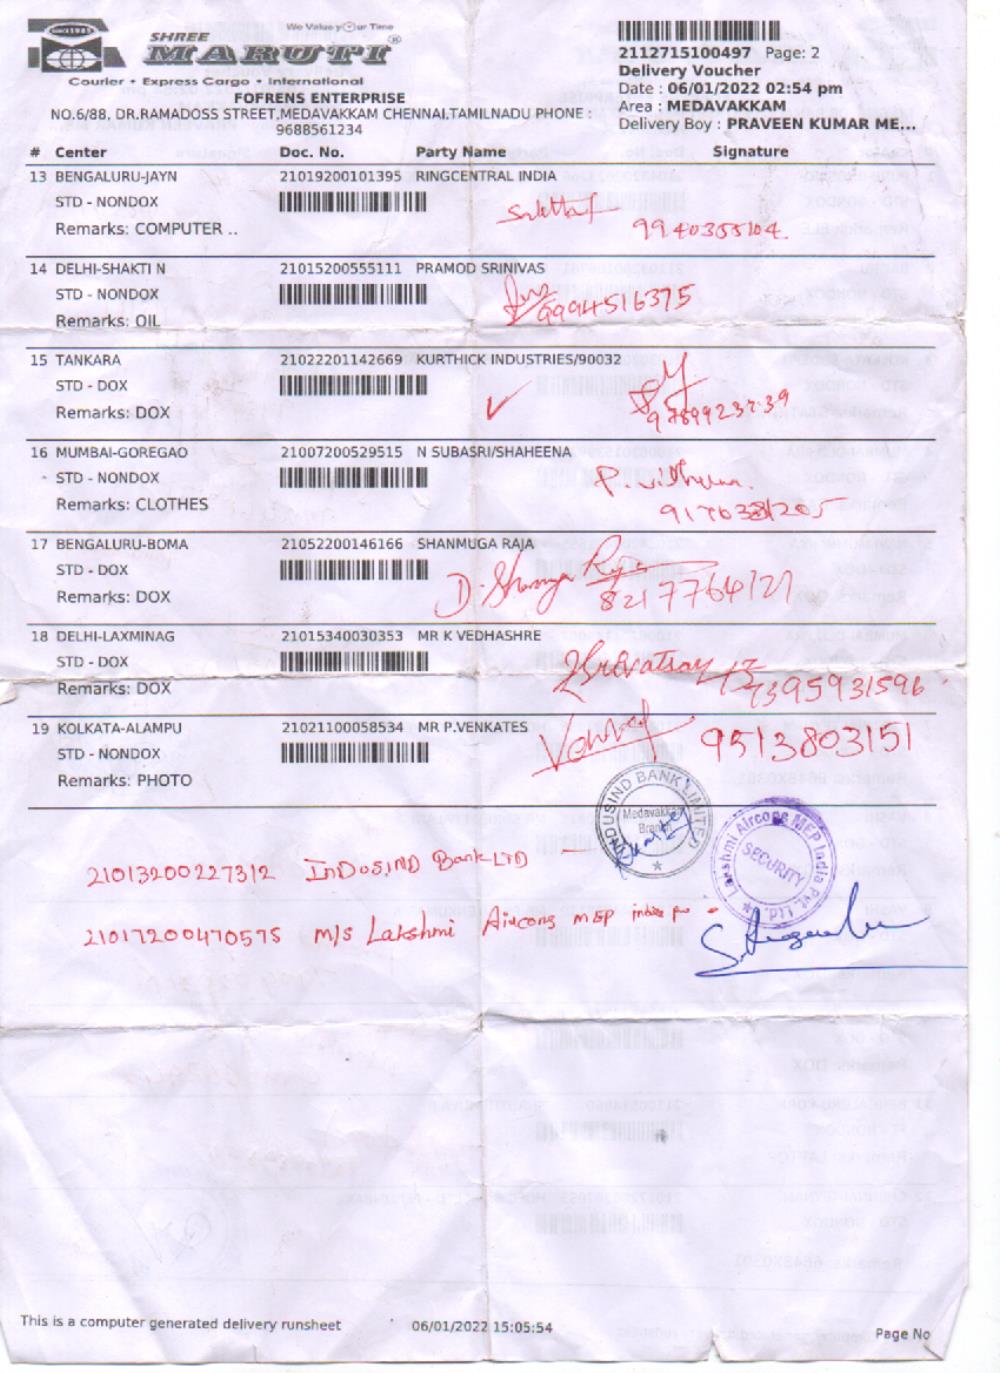 SINCE 1985
We Value yOur Time
SHREE
MARUTI®
Courier • Express Cargo • International
FOFRENS ENTERPRISE
NO.6/88, DR.RAMADOSS STREET,MEDAVAKKAM CHENNAI,TAMILNADU PHONE :
9688561234
2112715100497 Page: 2
Delivery Voucher
Date : 06/01/2022 02:54 pm
Area : MEDAVAKKAM
Delivery Boy : PRAVEEN KUMAR ME...
# Center Doc. No. Party Name Signature
13 BENGALURU-JAYN 21019200101395 RINGCENTRAL INDIA
STD - NONDOX
Remarks: COMPUTER ..
9940355104
14 DELHI-SHAKTI N 21015200555111 PRAMOD SRINIVAS
STD - NONDOX 9994516375
Remarks: OIL
15 TANKARA 21022201142669 KURTHICK INDUSTRIES/90032
STD - DOX
Remarks: DOX
16 MUMBAI-GOREGAO 21007200529515 N SUBASRI/SHAHEENA
STD - NONDOX
Remarks: CLOTHES
17 BENGALURU-BOMA 21052200146166 SHANMUGA RAJA
STD - DOX
Remarks: DOX 8217764121
18 DELHI-LAXMINAG 21015340030353 MR K VEDHASHRE
STD - DOX
Remarks: DOX 7395931596
19 KOLKATA-ALAMPU 21021100058534 MR P.VENKATES
STD - NONDOX 9513803151
Remarks: PHOTO
INDUSIND BANK LIMITED
Medavakkam
Branch
Lakshmi Aircons MEP India Pvt. Ltd.
SECURITY
21013200227312 INDOSIND Bank LTD
21017200470575 M/s Lakshmi Aircons MEP india
This is a computer generated delivery runsheet 06/01/2022 15:05:54 Page No